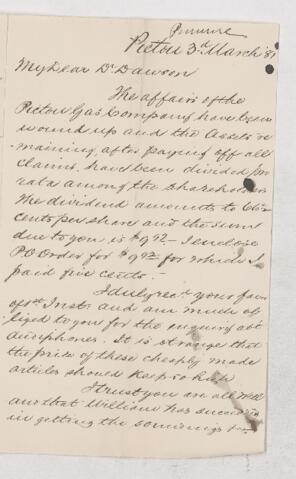 Pictou 3rd March '8
My dear Dr Dawson
The affairs of the
Pictou Gas Company have been
wound up and the Assets re-
maining, after paying off all
claims, have been divided pro
rata among the shareholders
The dividend amounts to
cents per share and the sum
due to you is $9 I enclose
P.O. Order for $9 for which I
paid five cents.
I duly recd. your favor
of 1st Inst. and am much ob-
liged to you for the enquiry abt
Audiphones. It is strange that
the price of these cheaply made
articles should keep so high
I trust you are all well
and that William has succeeded
in getting the